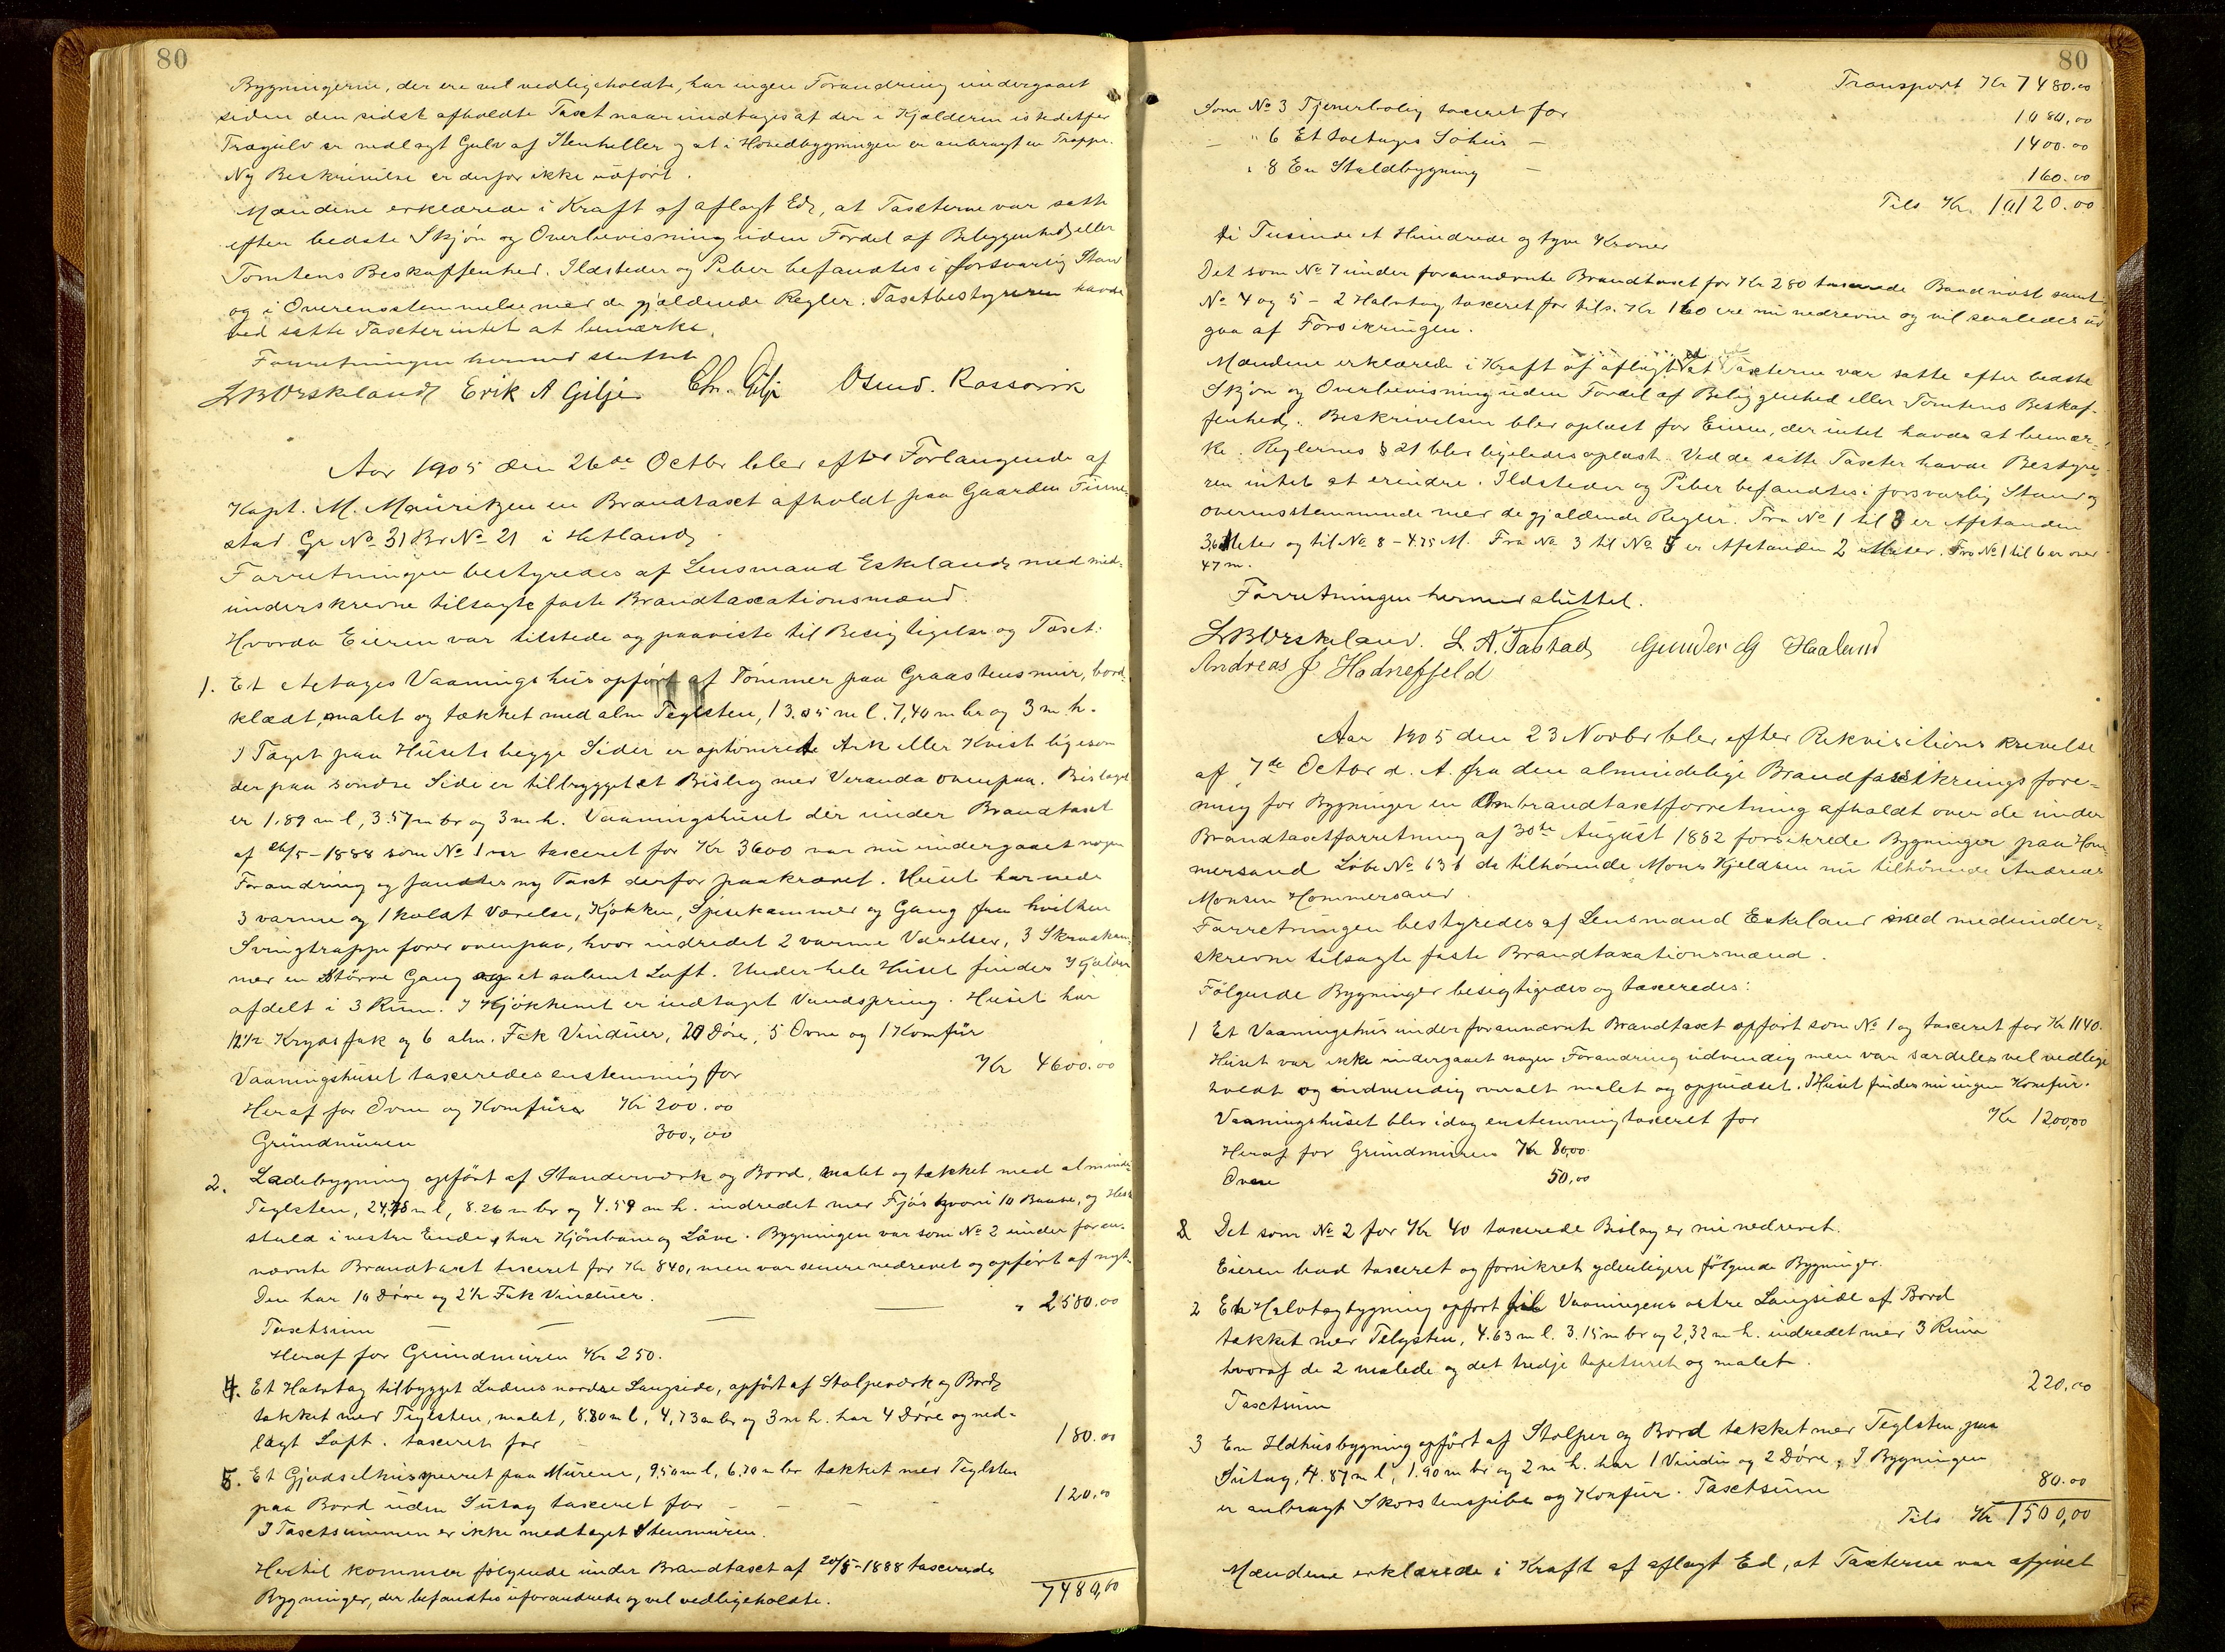 80
Bygningerne, der ere vel vedligeholdte, har ingen Forandring undergaaet
siden den sidst afholdte Taxt naar undtages at der i Kjælderen istedetfor
Trægulv er nedlagt Gulv af Stenheller og at i Hovedbygningen er anbragt en Trappe.
Ny Beskrivelse er derfor ikke udført.
Mændene erklærede i Kraft af aflagt Ed, at Taxterne var satte
efter bedste Skjøn og Overbevisning uden Fordel af Beliggenhed eller
Tomtens Beskaffenhed. Ildsteder og Piber befandtes i forsvarlig Stand
og i Overensstemmelse med de gjældende Regler. Taxtbestyreren havde
ved satte Taxter intet at bemærke.
Forretningen hermed sluttet
Erik A Gilje Chr. Gilje Osmd. Rossavik
Aar 1905 den 26de Octbr blev efter Forlangende af
Kapt. M. Mauritzen en Brandtaxt afholdt paa Gaarden Finne-
stad Gr No 31 Br No 21 i Hetland.
Forretningen bestyredes af Lensmand Eskeland med med-
underskrevne tilsagte faste Brandtaxationsmænd.
Hvorda Eieren var tilstede og paaviste til Besigtigelse og Taxt:
1. Et Etetages Vaaningshus opført af Tømmer paa Graastensmur, bord-
klædt, malet og tækket med alm Teglsten, 13.05 m l. 7,40 m br og 3 m h.
I Taget paa Husets begge Sider er optømrede Ark eller Kvist ligesom
der paa søndre Side er tilbygget et Bislag med Veranda ovenpaa. Bislaget
er 1.89 m l, 3.57 m br og 3 m h. Vaaningshuset der under Brandtaxt
af 26/5-1888 som No 1 var taxeret for Kr 3600 var nu undergaaet nogen
Forandring og fandtes ny Taxt derfor paakrævet. Huset har nede
3 varme og 1 koldt Værelse, Kjøkken, Spisekammer og Gang fra hvilken
Svingtrappe fører ovenpaa, hvor indredet 2 varme Værelser, 3 Skraakam-
mer en større Gang og et aabent Loft. Under hele Huset findes Kjælder
afdelt i 3 Rum. I Kjøkkenet er indtaget Vandspring. Huset har
12 1/2 Krydsfak og 6 alm. Fak Vinduer, 20 Døre, 5 Ovne og 1 Komfur
Vaaningshuset taxeredes enstemmig for Kr 4600.00
Heraf for Ovne og Komfure Kr 200.00
Grundmuren 300,00
2. Ladebygning opført af Standerværk og Bord, malet og tækket med alminde
Teglsten, 24,75 m l, 8.26 m br og 4.59 m h. indredet med Fjøs hvori 10 Baase, og Heste
stald i vestre Ende, har Kjørebane og Låve. Bygningen var som No 2 under foran-
nævnte Brandtaxt taxeret for Kr 840, men var senere nedrevet og opført af nyt.
Den har 10 Døre og 2 1/2 Fak Vinduer.
Taxtsum — — — " 2580.00
Heraf for Grundmuren Kr 250.
4. Et Halvtag tilbygget Ladens nordre Langside, opført af Stolpeværk og Bord
tækket med Teglsten, malet, 8.80 m l, 4,73 m br og 3 m h. har 4 Døre og ned-
lagt Loft. taxeret for 180.00
5. Et Gjødselhus sperret paa Murene, 9.50 m l, 6.70 m br tækket med Teglsten
paa Bord uden Sutag taxeret for - - - - 120.00
I Taxtsummen er ikke medtaget Stenmuren.
Hertil kommer følgende under Brandtaxt af 20/5-1888 taxerede
Bygninger, der befandtes uforandrede og vel vedligeholdte. 7480,00
80
Transport Kr 7480.00
Som No 3 Tjenerbolig taxeret for 1080,00
— " 6 Et toetages Søhus — 1400.00
" 8 En Staldbygning — 160.00
Tils Kr. 10120.00
Ti Tusinde et Hundrede og tyve Kroner
Det som No 7 under forannævnte Brandtaxt for Kr 280 taxerede Baadnøst samt
No 4 og 5 - 2 Halvtag taxeret for tils. Kr 160 ere nu nedrevne og vil saaledes ud
gaa af Forsikringen.
Mændene erklærede i Kraft af aflagt Ed at Taxterne var satte efter bedste
Skjøn og Overbevisning uden Fordel af Beliggenhed eller Tomtens Beskaf-
fenhed. Beskrivelsen blev oplæst for Eieren, der intet havde at bemær-
ke. Reglernes § 21 blev ligeledes oplæst. Ved de satte Taxter havde Bestyre-
ren intet at erindre. Ildsteder og Piber befandtes i forsvarlig Stand og
overensstemmende med de gjældende Regler. Fra No 1 til 3 er Afstanden
36 Meter og til No 8 - 4.75 M. Fra No 3 til No 5 er Afstanden 2 Meter. Fra No 1 til 6 er over
47 m.
Forretningen hermed sluttet.
L. A. Tastad Gunder G Haaland
Andreas J Hodnefjeld
Aar 1905 den 23 Novbr blev efter Rekvisitions krivelse
af 7de Octbr d. A. fra den almindelige Brandforsikrings fore-
ning for Bygninger en Ombrandtaxtforretning afholdt over de under
Brandtaxtforretning af 30te August 1882 forsikrede Bygninger paa Hom-
mersand Løbe No 636 da tilhørende Mons Kjeldsen nu tilhørende Andreas
Monsen Hommersand.
Forretningen bestyredes af Lensmand Eskeland med medunder-
skrevne tilsagte faste Brandtaxationsmænd.
Følgende Bygninger besigtigedes og taxeredes:
1 Et Vaaningshus under forannævnte Brandtaxt opført som No 1 og taxeret for Kr 1140.
Huset var ikke undergaaet nogen Forandring udvendig men var særdeles vel vedlige
holdt og indvendig overalt malet og oppudset. I Huset findes nu ingen Komfur.
Vaaningshuset blev idag enstemmig taxeret for Kr 1200,00
Heraf for Grundmuren Kr 80.00
Ovne 50,00
2 Det som No 2 for Kr 40 taxerede Bislag er nu nedrevet.
Eieren bad taxeret og forsikret yderligere følgende Bygninger.
2 En Halvtagbygning opført til Vaaningens østre Langside af Bord
tækket med Telgsten, 4.63 m l. 3.15 m br og 2,32 m h. indredet med 3 Rum
hvoraf de 2 malede og det tredje tapetseret og malet.
Taxtsum 220,00
3 En Ildhusbygning opført af Stolper og Bord tækket med Teglsten paa
Sutag, 4.87 m l, 1.90 m br og 2 m h. har 1 Vindu og 2 Døre, I Bygningen
er anbragt Skorstenspibe og Komfur. Taxtsum 80.00
Tils Kr 1500,00
Mændene erklærede i Kraft af aflagt Ed, at Taxterne var afgivet